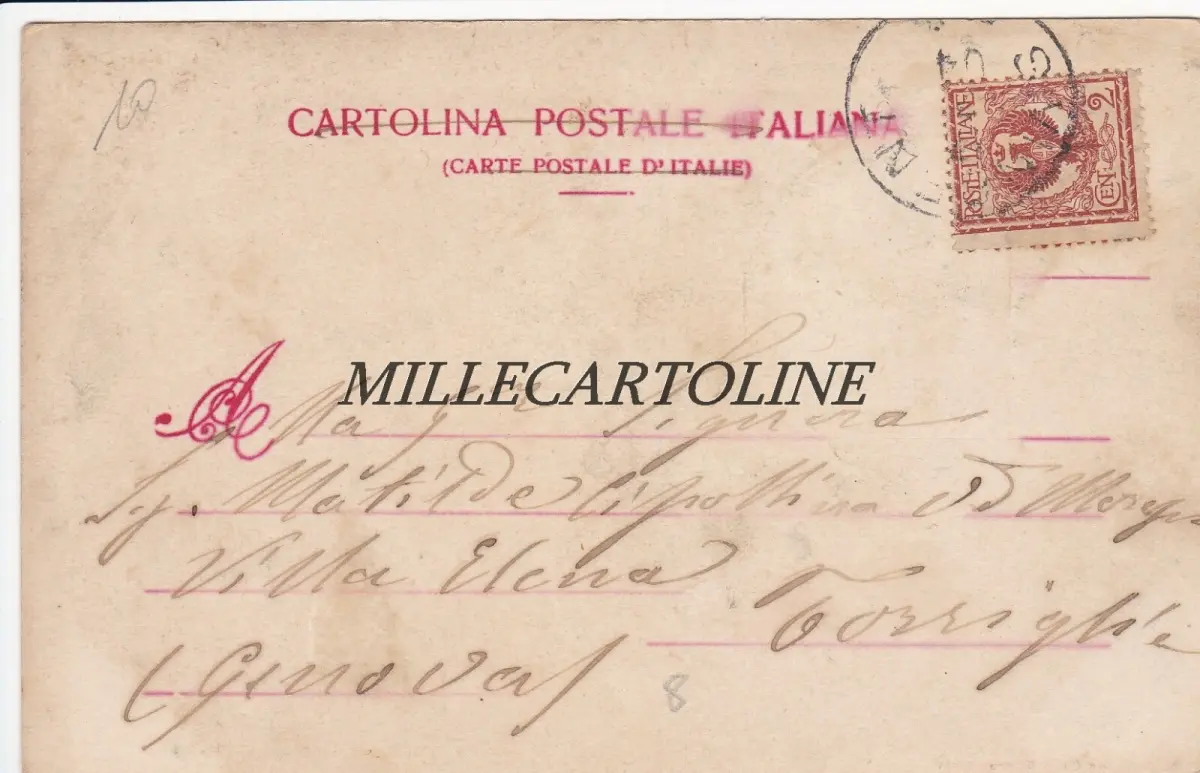 CARTOLINA POSTALE ITALIANA
(CARTE POSTALE D'ITALIE)
POSTE ITALIANE
CEN. 2
04
MILLECARTOLINE
A
Signora
Sig. Matilde Cipollina Vd
Villa Elena
Torriglia
(Genova)
8